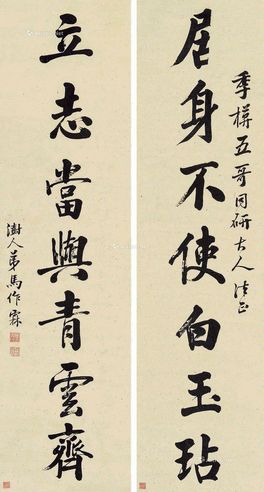 季樸五哥同研大人法正
居身不使白玉玷
立志當與青雲齊
澍人弟馬作霖